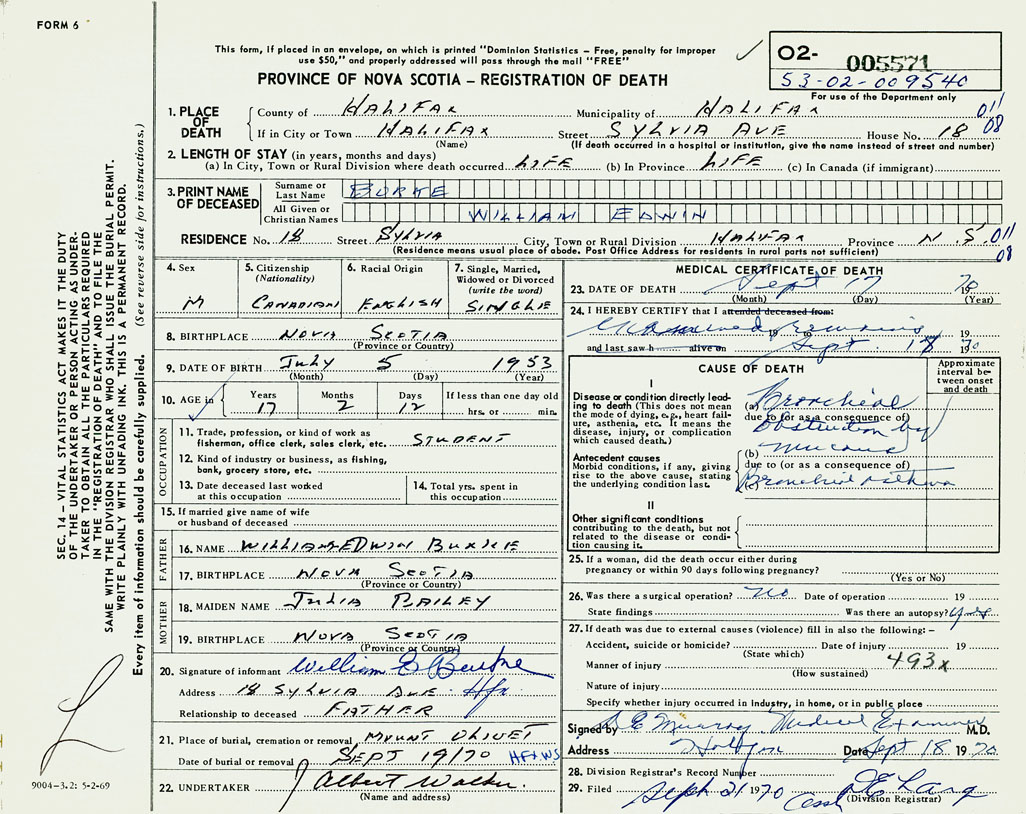 FORM 6
This form, if placed in an envelope, on which is printed "Dominion Statistics – Free, penalty for improper
use $50," and properly addressed will pass through the mail "FREE"
PROVINCE OF NOVA SCOTIA – REGISTRATION OF DEATH
02- 005571
53-02-009540
For use of the Department only
1. PLACE OF DEATH
County of HALIFAX Municipality of HALIFAX 011
If in City or Town HALIFAX Street SYLVIA AVE House No. 18 08
(Name) (If death occurred in a hospital or institution, give the name instead of street and number)
2. LENGTH OF STAY (in years, months and days)
(a) In City, Town or Rural Division where death occurred LIFE (b) In Province LIFE (c) In Canada (if immigrant)
3. PRINT NAME OF DECEASED
Surname or Last Name BURKE
All Given or Christian Names WILLIAM EDWIN
RESIDENCE No. 18 Street SYLVIA City, Town or Rural Division HALIFAX Province N.S. 011
(Residence means usual place of abode. Post Office Address for residents in rural parts not sufficient) 08
4. Sex
M
5. Citizenship
(Nationality)
CANADIAN
6. Racial Origin
ENGLISH
7. Single, Married,
Widowed or Divorced
(write the word)
SINGLE
8. BIRTHPLACE NOVA SCOTIA
(Province or Country)
9. DATE OF BIRTH July 5 1953
(Month) (Day) (Year)
10. AGE in
Years Months Days If less than one day old
17 2 12 hrs. or min.
OCCUPATION
11. Trade, profession, or kind of work as
fisherman, office clerk, sales clerk, etc. STUDENT
12. Kind of industry or business, as fishing,
bank, grocery store, etc.
13. Date deceased last worked
at this occupation
14. Total yrs. spent in
this occupation
15. If married give name of wife
or husband of deceased
FATHER
16. NAME WILLIAM EDWIN BURKE
17. BIRTHPLACE NOVA SCOTIA
(Province or Country)
MOTHER
18. MAIDEN NAME JULIA BAILEY
19. BIRTHPLACE NOVA SCOTIA
(Province or Country)
20. Signature of informant William E Burke
Address 18 SYLVIA AVE. Hfx.
Relationship to deceased FATHER
21. Place of burial, cremation or removal MOUNT OLIVET
Date of burial or removal SEPT 19/70 HFX.WS
22. UNDERTAKER Albert Walker.
(Name and address)
MEDICAL CERTIFICATE OF DEATH
23. DATE OF DEATH Sept 17 70
(Month) (Day) (Year)
24. I HEREBY CERTIFY that I attended deceased from:
Examined remains 19
and last saw h alive on Sept. 18 1970
CAUSE OF DEATH
Approximate
interval be-
tween onset
and death
I
Disease or condition directly lead-
ing to death (This does not mean
the mode of dying, e.g., heart fail-
ure, asthenia, etc. It means the
disease, injury, or complication
which caused death.)
(a) Bronchial
due to (or as a consequence of)
Obstruction by
Antecedent causes
Morbid conditions, if any, giving
rise to the above cause, stating
the underlying condition last.
(b) mucous
due to (or as a consequence of)
(c) Bronchial asthma
II
Other significant conditions
contributing to the death, but not
related to the disease or condi-
tion causing it.
25. If a woman, did the death occur either during
pregnancy or within 90 days following pregnancy?
(Yes or No)
26. Was there a surgical operation? no Date of operation 19
State findings Was there an autopsy? yes
27. If death was due to external causes (violence) fill in also the following: –
Accident, suicide or homicide? Date of injury 19
(State which)
Manner of injury 493x
(How sustained)
Nature of injury
Specify whether injury occurred in industry, in home, or in public place
Signed by Murray Medical Examiner M.D.
Address Date Sept 18 1970
28. Division Registrar's Record Number
29. Filed Sept 21 1970
(Division Registrar)
SEC. 14 – VITAL STATISTICS ACT MAKES IT THE DUTY
OF THE UNDERTAKER OR PERSON ACTING AS UNDER-
TAKER TO OBTAIN ALL THE PARTICULARS REQUIRED
IN THE "REGISTRATION OF DEATH" AND TO FILE THE
SAME WITH THE DIVISION REGISTRAR WHO SHALL ISSUE THE BURIAL PERMIT.
WRITE PLAINLY WITH UNFADING INK. THIS IS A PERMANENT RECORD.
Every item of information should be carefully supplied. (See reverse side for instructions.)
9004-3.2: 5-2-69